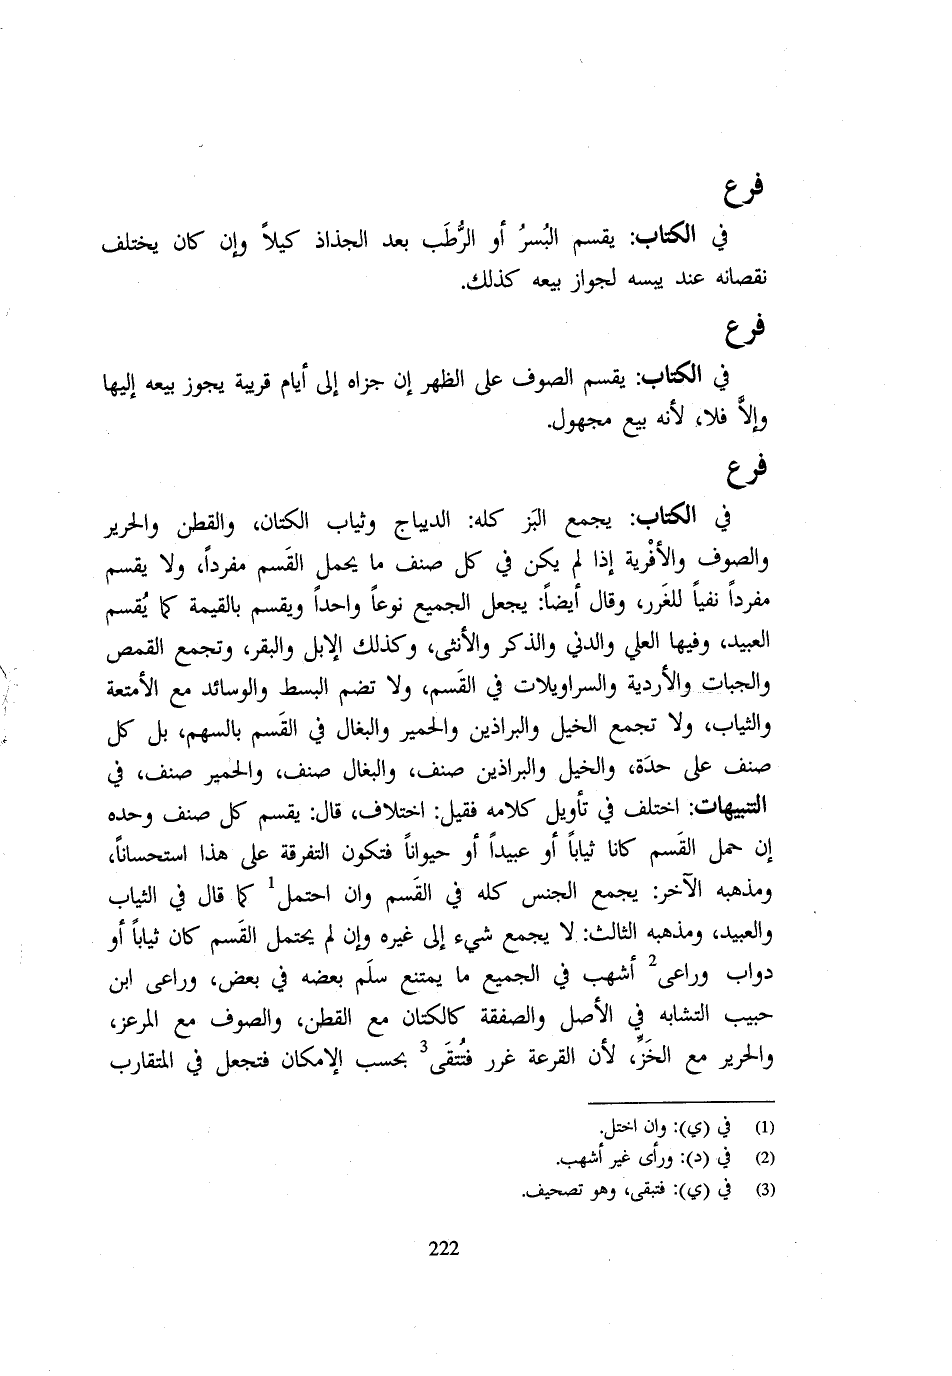 فرع
في الكتاب: يقسم البُسرُ أو الرُّطَب بعد الجذاذ كيلاً وإن كان يختلف
نقصانه عند يبسه لجواز بيعه كذلك.
فرع
في الكتاب: يقسم الصوف على الظهر إن جزاه إلى أيام قريبة يجوز بيعه إليها
وإلاَّ فلا، لأنه بيع مجهول.
فرع
في الكتاب: يجمع البَز كله: الديباج وثياب الكتان، والقطن والحرير
والصوف والأفْرية إذا لم يكن في كل صنف ما يحمل القَسم مفرداً، ولا يقسم
مفرداً نفياً للغَرر، وقال أيضاً: يجعل الجميع نوعاً واحداً ويقسم بالقيمة كما يُقسم
العبيد، وفيها العلي والدني والذكر والأنثى، وكذلك الإبل والبقر، وتجمع القمص
والجبات والأردية والسراويلات في القَسم، ولا تضم البسط والوسائد مع الأمتعة
والثياب، ولا تجمع الخيل والبراذين والحمير والبغال في القَسم بالسهم، بل كل
صنف على حدَة، والخيل والبراذين صنف، والبغال صنف، والحمير صنف، في
التنبيهات: اختلف في تأويل كلامه فقيل: اختلاف، قال: يقسم كل صنف وحده
إن حمل القَسم كانا ثياباً أو عبيداً أو حيواناً فتكون التفرقة على هذا استحساناً،
ومذهبه الآخر: يجمع الجنس كله في القَسم وان احتمل1 كما قال في الثياب
والعبيد، ومذهبه الثالث: لا يجمع شيء إلى غيره وإن لم يحتمل القَسم كان ثياباً أو
دواب وراعى2 أشهب في الجميع ما يمتنع سلَم بعضه في بعض، وراعى ابن
حبيب التشابه في الأصل والصفقة كالكتان مع القطن، والصوف مع المرعز،
والحرير مع الخَزِّ، لأن القرعة غرر فتُتقَى3 بحسب الإمكان فتجعل في المتقارب
(1) في (ي): وان اختل.
(2) في (د): ورأى غير أشهب.
(3) في (ي): فتبقى، وهو تصحيف.
222